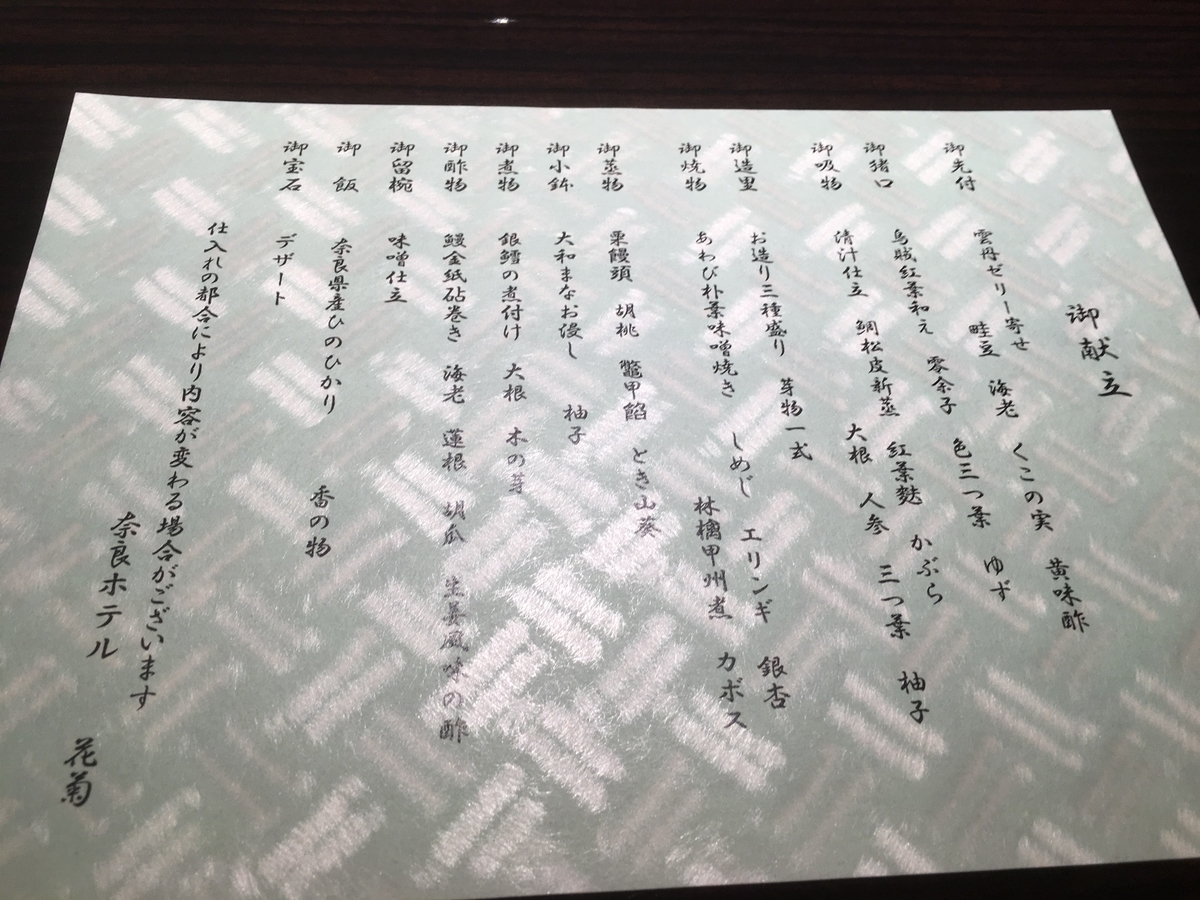 御献立
御先付 雲丹ゼリー寄せ 畦豆 海老 くこの実 黄味酢
色三つ葉 ゆず
御猪口 烏賊紅葉和え 零余子
御吸物 清汁仕立 鯛松皮新蒸 紅葉麩 かぶら
大根 人参 三つ葉 柚子
御造里 お造り三種盛り 芽物一式
御焼物 あわび朴葉味噌焼き しめじ エリンギ 銀杏
林檎甲州煮 カボス
御蒸物 栗饅頭 胡桃 鼈甲餡 とき山葵
御小鉢 大和まなお浸し 柚子
御煮物 銀鱈の煮付け 大根 木の芽
御酢物 鰻金紙砧巻き 海老 蓮根 胡瓜 生姜風味の酢
御留椀 味噌仕立
御飯 奈良県産ひのひかり 香の物
御宝石 デザート
仕入れの都合により内容が変わる場合がございます
奈良ホテル 花菊